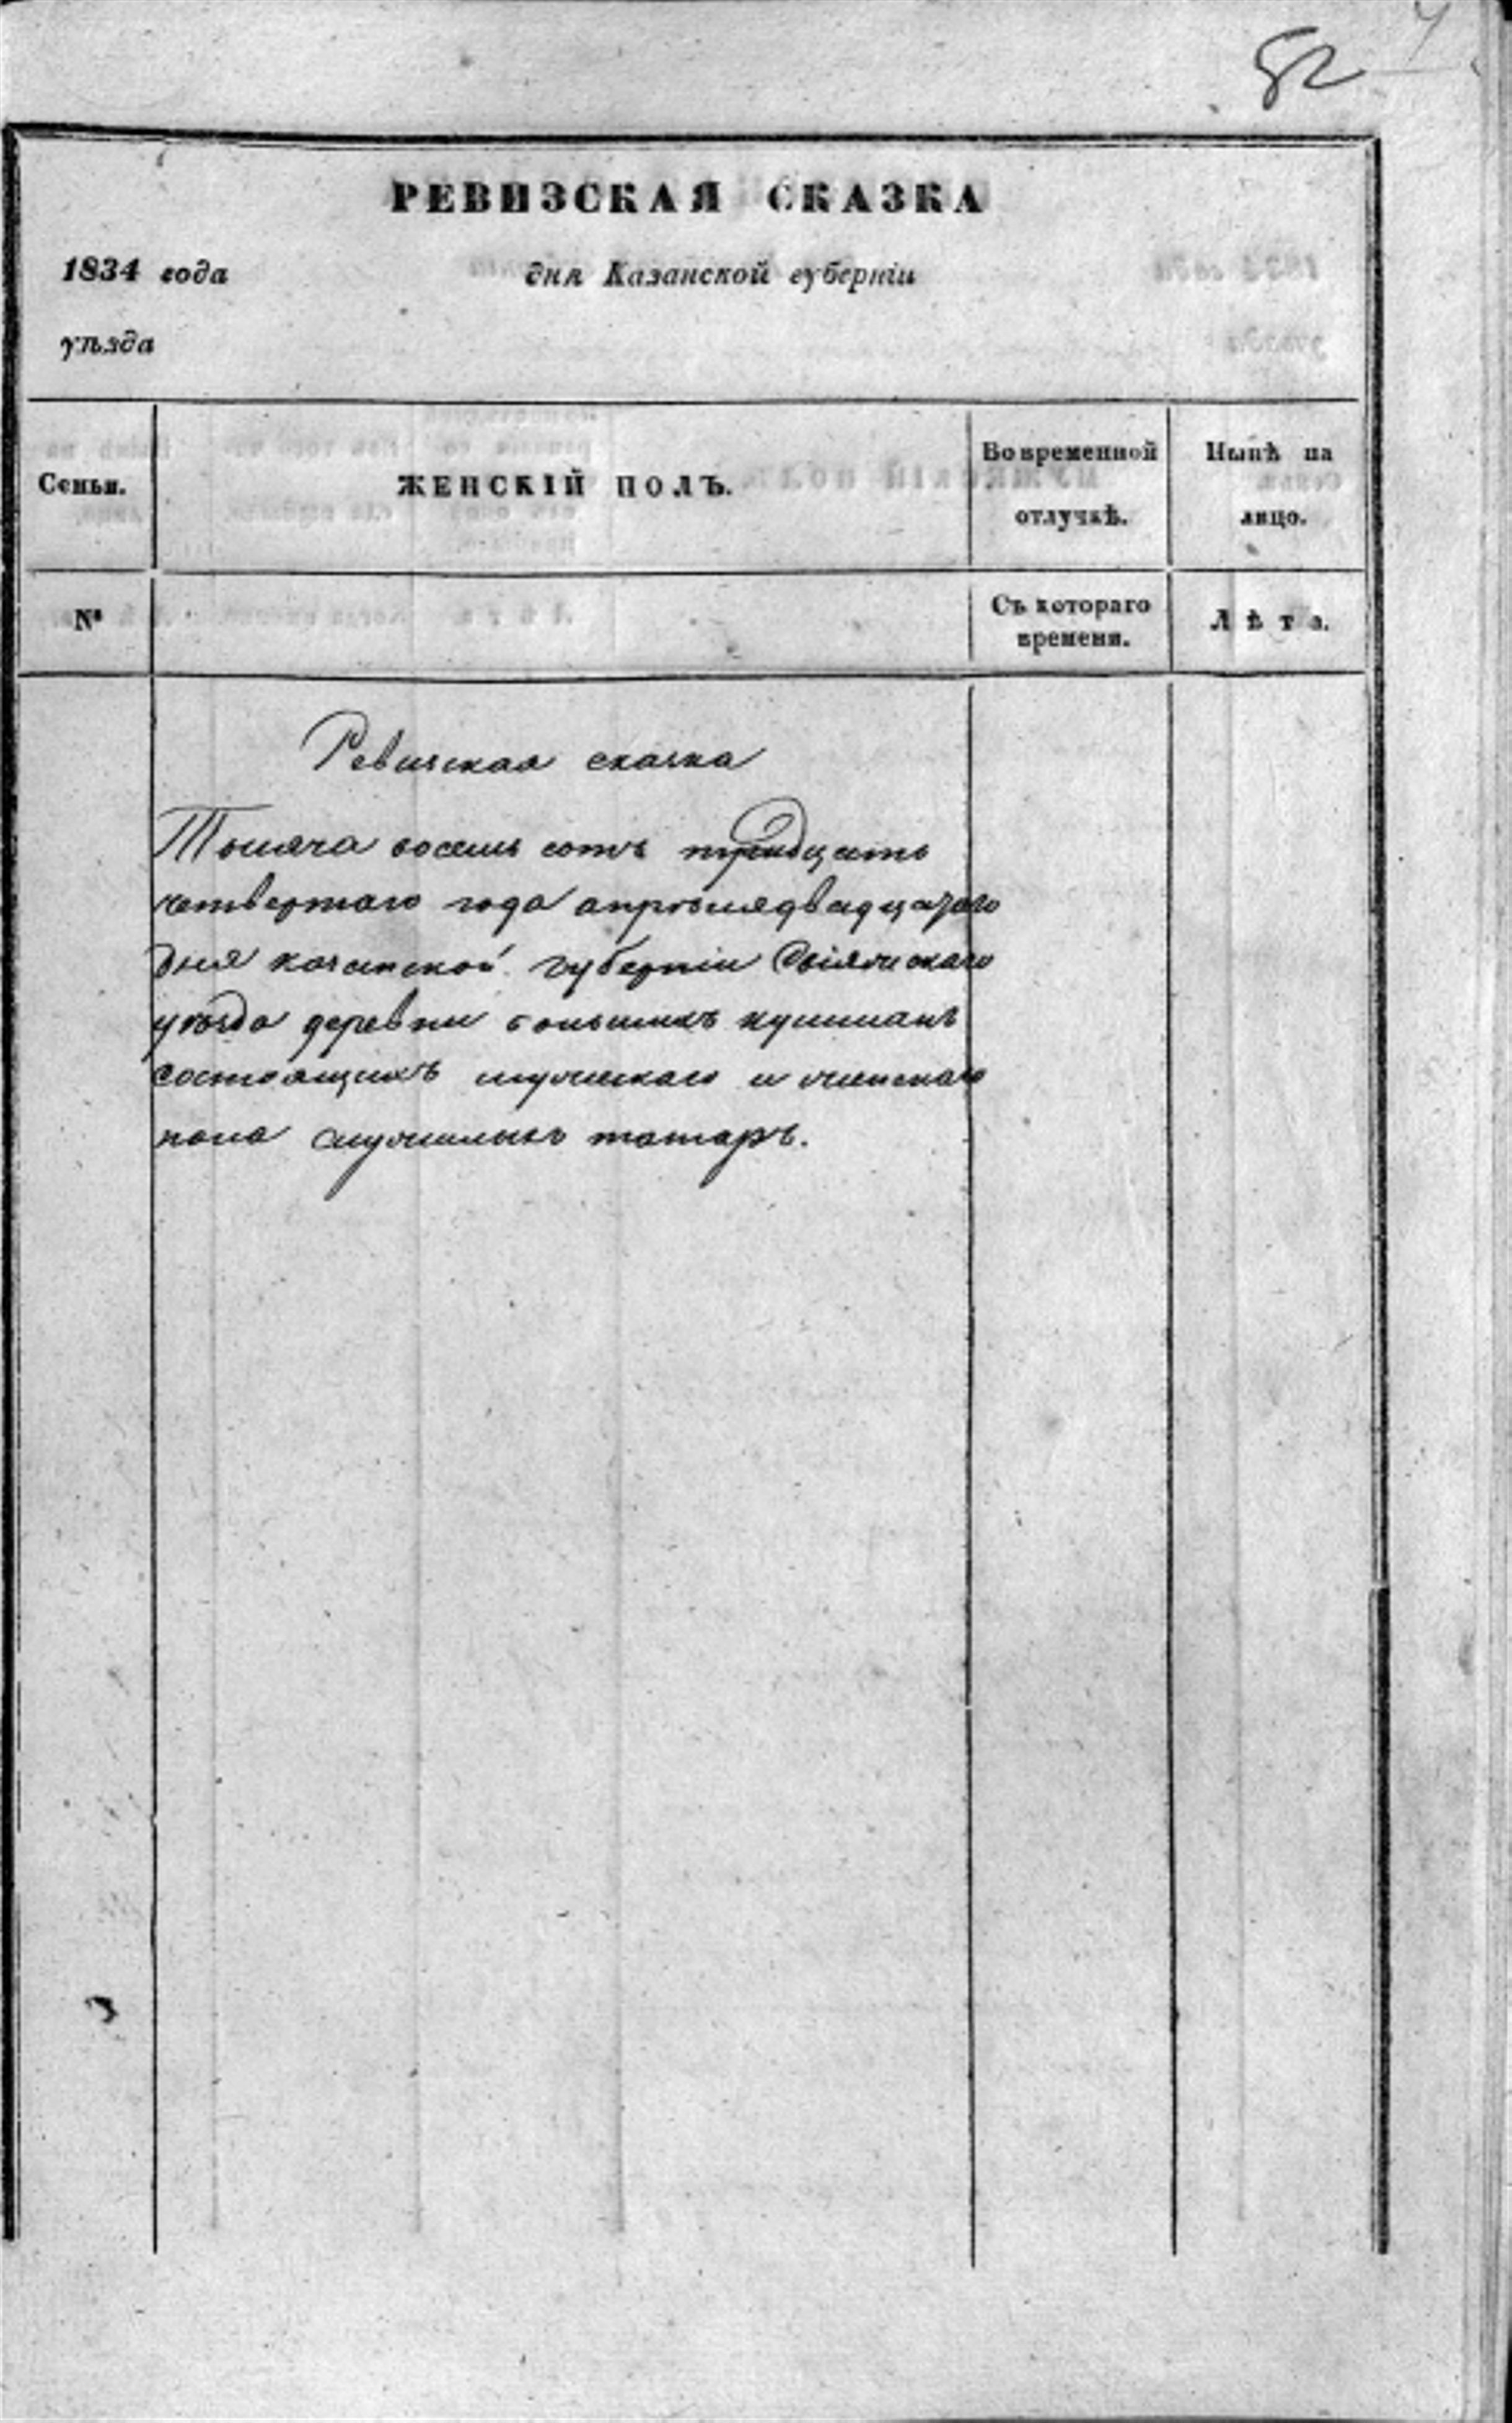 52
РЕВИЗСКАЯ СКАЗКА
1834 года дня Казанской губерніи
уѣзда
Семьи. ЖЕНСКІЙ ПОЛЪ. Во временной отлучкѣ. Нынѣ на лицо.
№ Съ котораго времени. Лѣта.
Ревизская сказка
Тысяча восемь сотъ тридцать
четвертаго года апрѣля двадцатаго
дня казанской губерніи Свіяжскаго
уѣзда деревни большихъ
состоящихъ мужескаго и женскаго
пола служилыхъ татаръ.